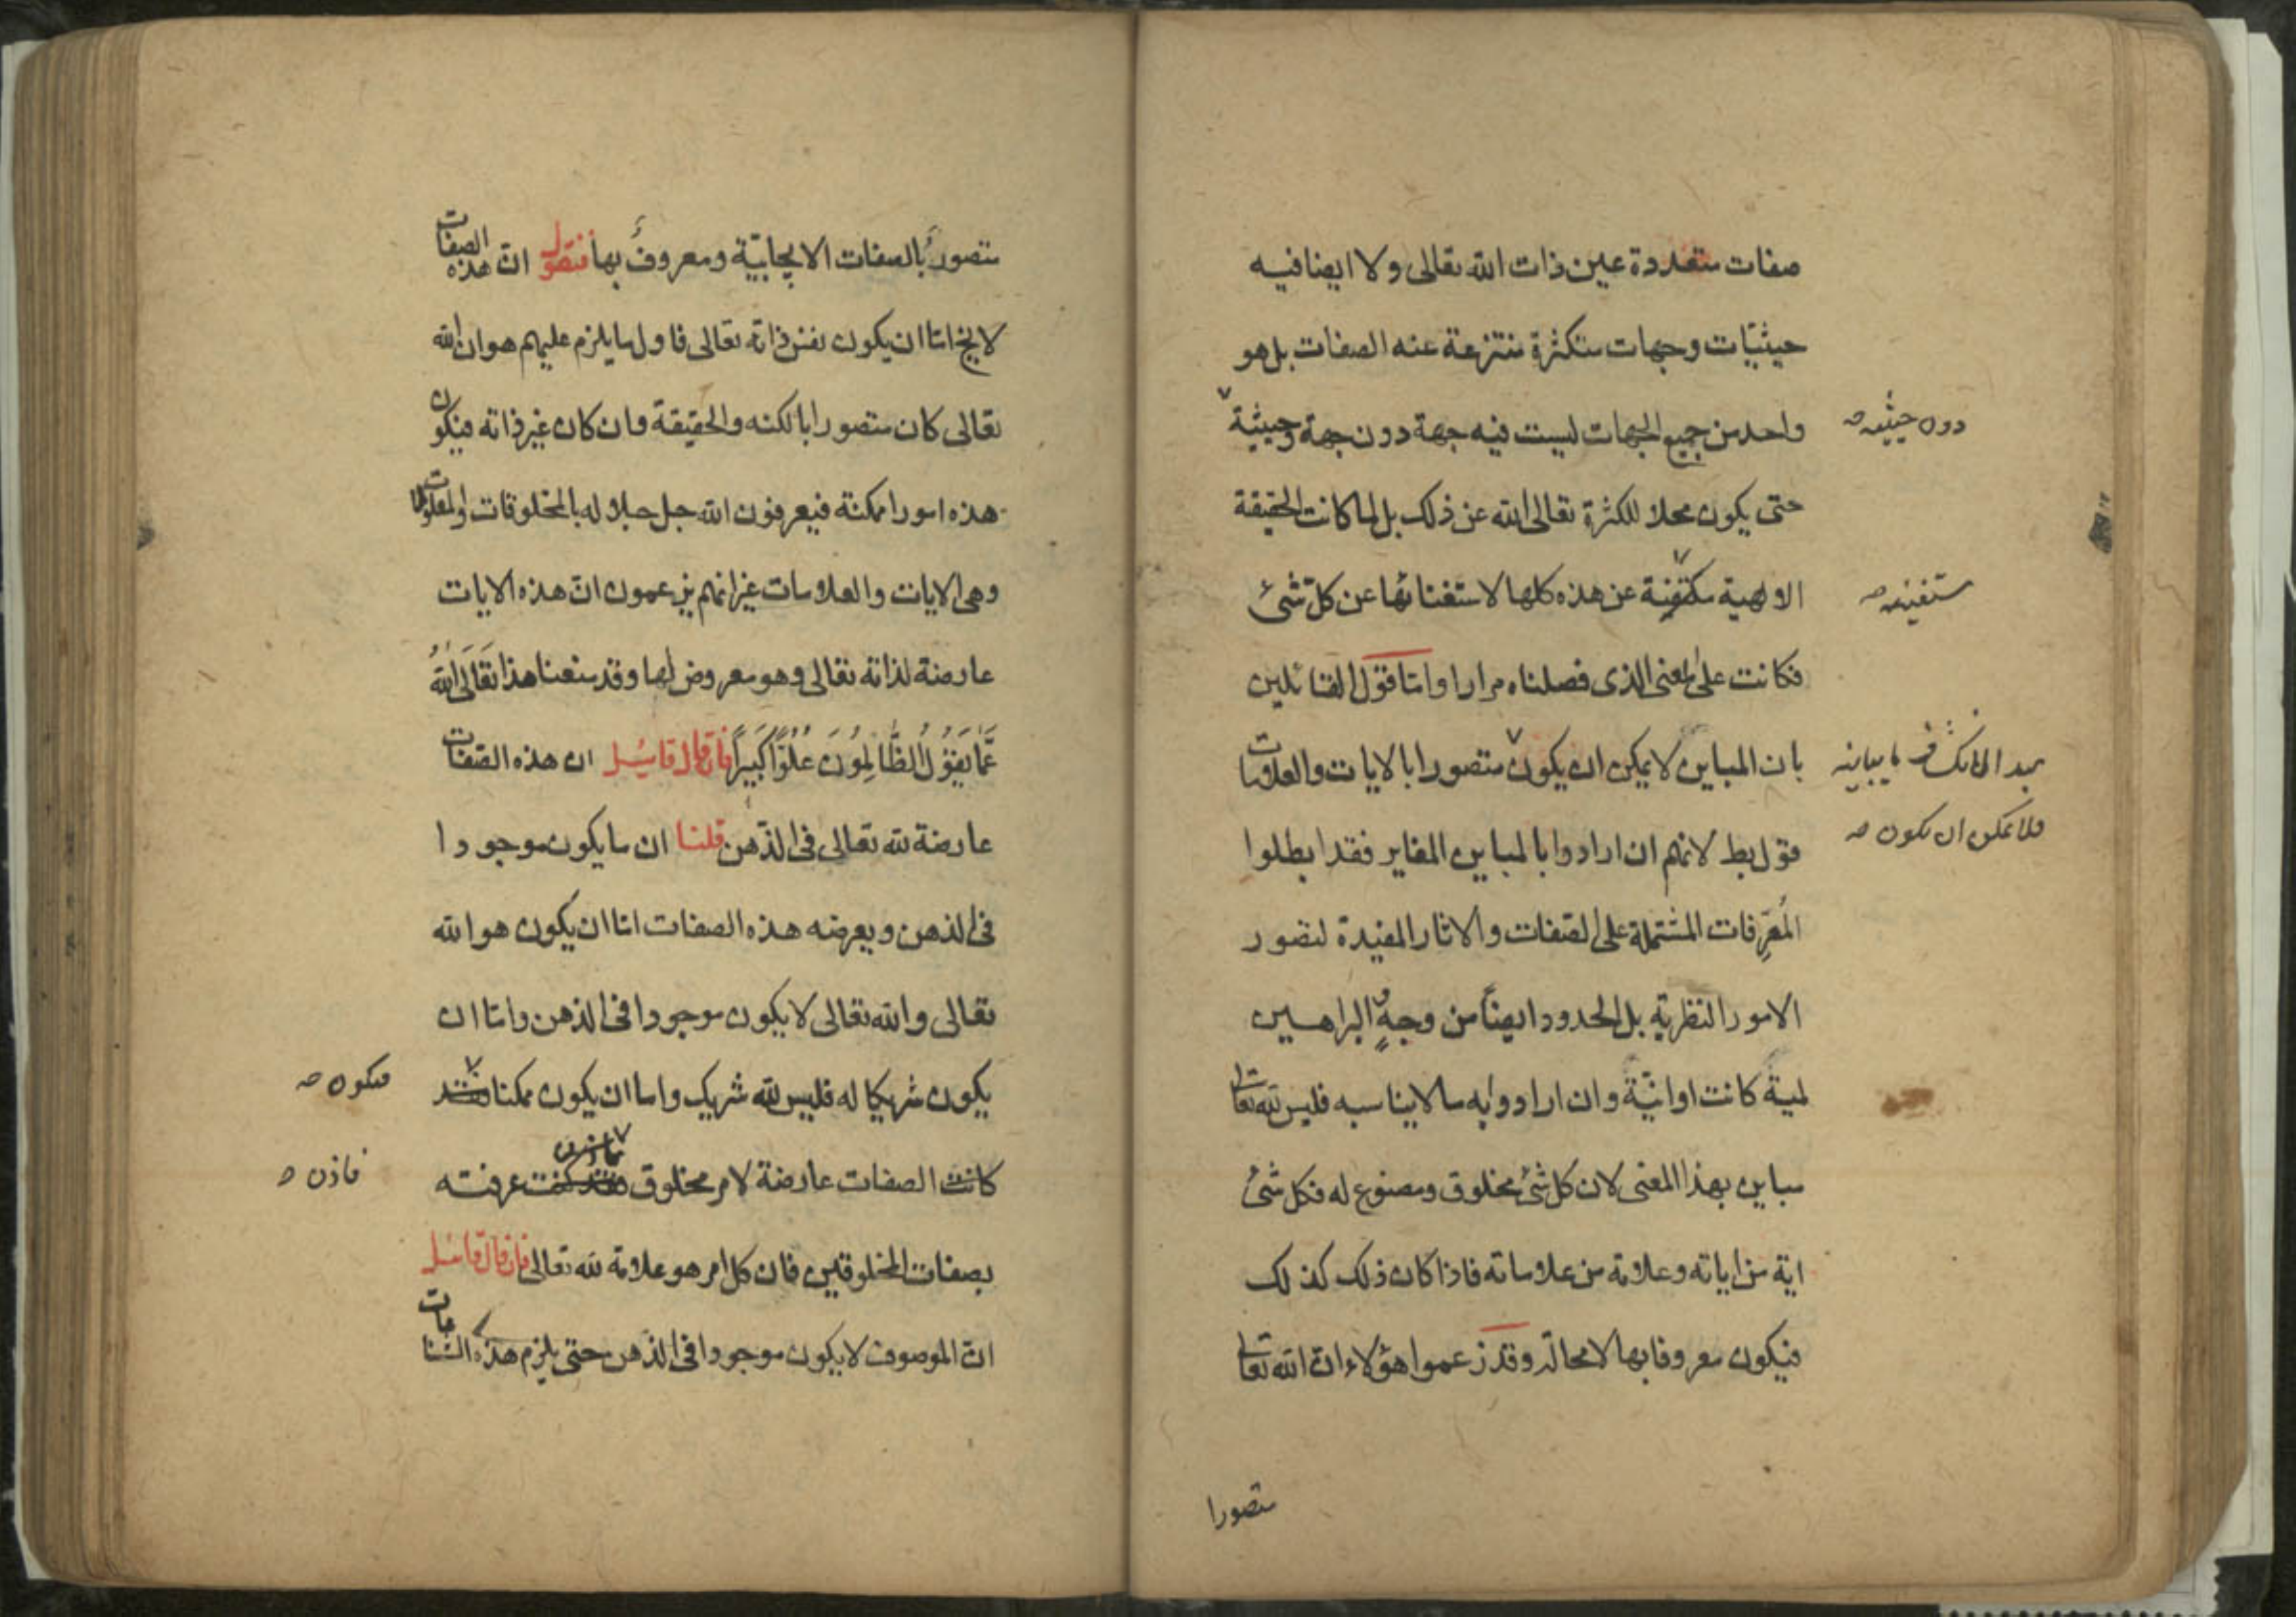 صفات متعددة عين ذات الله تعالى ولا ايضا فيه
حيثيّات وجهات متكثرة منتزعة عنه الصفات بل هو
واحد من جميع الجهات ليست فيه جهة دون جهة وحيثية
دون حيثية صح
حتى يكون محلا للكثرة تعالى الله عن ذلك بل لما كانت الحقيقة
الالهية عن هذه كلها لاستغنائها عن كل شئ
مستغنية صح
فكانت على المعنى الذى فصلناه مرارا وامّا قول القائلين
بان المباين لا يمكن ان يكون متصورا بالايات والعلامات
فلا يمكن ان يكون صح
قول بط لانهم ان ارادوا بالمباين المغاير فقد ابطلوا
المُعَرِّفات المشتملة على الصّفات والاثار المفيدة لتصور
الامور النظرية بل الحدود ايضاً من وجهٍ والبراهين
لمية كانت او انيّة وان ارادوا به ما لا يناسبه فليس لله تعالى
مباين بهذا المعنى لان كل شئ مخلوق ومصنوع له فكل شئ
اية من اياته وعلامة من علاماته فاذا كان ذلك كذلك
فيكون معروفا بها لا محالة وقد زعموا هؤلاء انّ الله تعالى
متصورا
متصورٌ بالصفات الايجابيّة ومعروفٌ بها فنقول انّ هذه الصفات
لا يخ امّا ان يكون نفس ذاته تعالى فاول ما يلزم عليهم هو ان الله
تعالى كان متصورا بالكنه والحقيقة وان كان غير ذاته فيكون
هذه امورا ممكنة فيعرفون الله جل جلاله بالمخلوقات والمعلولات
وهى الايات والعلامات غير انهم يزعمون انّ هذه الايات
عارضة لذاته تعالى وهو معروض لها وقد منعنا هذا تَعَالَى اللهُ
عَمَّا يَقُولُ الظَّالِمُونَ عُلُوًّا كَبِيرًا فان قال قائل ان هذه الصّفات
عارضة لله تعالى فى الذّهن قلنا ان ما يكون موجودا
فى الذهن ويعرضه هذه الصفات امّا ان يكون هو الله
تعالى والله تعالى لا يكون موجودا فى الذهن وامّا ان
يكون شريكا له فليس لله شريك واما ان يكون ممكنا
فيكون صح
كانت الصفات عارضة لامر مخلوق عرفته
فاذن صح
بصفات المخلوقين فان كل امر هو علامة لله تعالى فان قال قائل
انّ الموصوف لا يكون موجودا فى الذهن حتى يلزم هذه